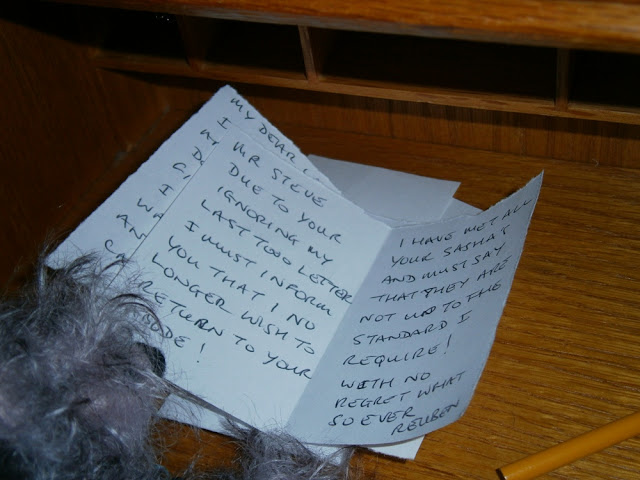 MY DEAR
I
WA
AN
MR STEVE
DUE TO YOUR
IGNORING MY
LAST TWO LETTER
I MUST INFORM
YOU THAT I NO
LONGER WISH TO
RETURN TO YOUR
ODE !
I HAVE MET ALL
YOUR SASHA'S
AND MUST SAY
THAT THEY ARE
NOT UP TO THE
STANDARD I
REQUIRE!
WITH NO
REGRET WHAT
SO EVER
REUBEN